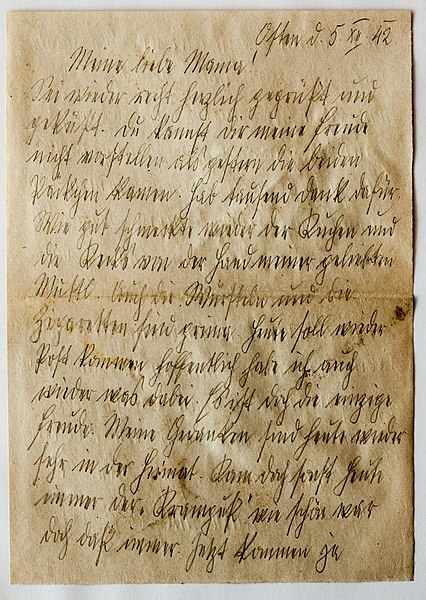 Osten d. 5 XII. 42.
Meine liebe Mama,
Sei wieder recht herzlich gegrüßt und
geküßt. Du kannst dir meine Freude
nicht vorstellen als gestern die beiden
Päckchen kamen. Hab tausend Dank dafür.
Wie gut schmeckte wieder der Kuchen und
die Keks von der Hand meiner geliebten
Muttl. Auch die Würsteln und die
Zigaretten sind prima. Heute soll wieder
Post kommen, hoffentlich habe ich auch
wieder was dabei. Es ist doch die einzige
Freude. Meine Gedanken sind heute wieder
sehr in der Heimat. Kam doch sonst heute
immer der „Krampus" wie schön war
doch daß immer. Jetzt kommen ja